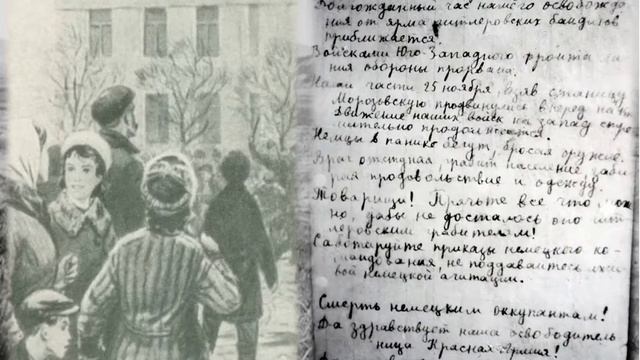 Долгожданный час нашего освобожде-
ния от ярма гитлеровских бандитов
приближается.
Войсками Юго-Западного фронта ли-
ния обороны прорвана.
Наши части 25 ноября, взяв станицу
Морозовскую продвинулись вперед на
Движение наших войск на запад стре-
мительно продолжается.
Немцы в панике бегут, бросая оружие.
Враг отступая грабит население, заби-
рая продовольствие и одежду.
Товарищи! Прячьте все что мож-
но, дабы не досталось оно гит-
леровским грабителям!
Саботируйте приказы немецкого ко-
мандования, не поддавайтесь лжи-
вой немецкой агитации.
Смерть немецким оккупантам!
Да здравствует наша освободитель
ница Красная Армия!